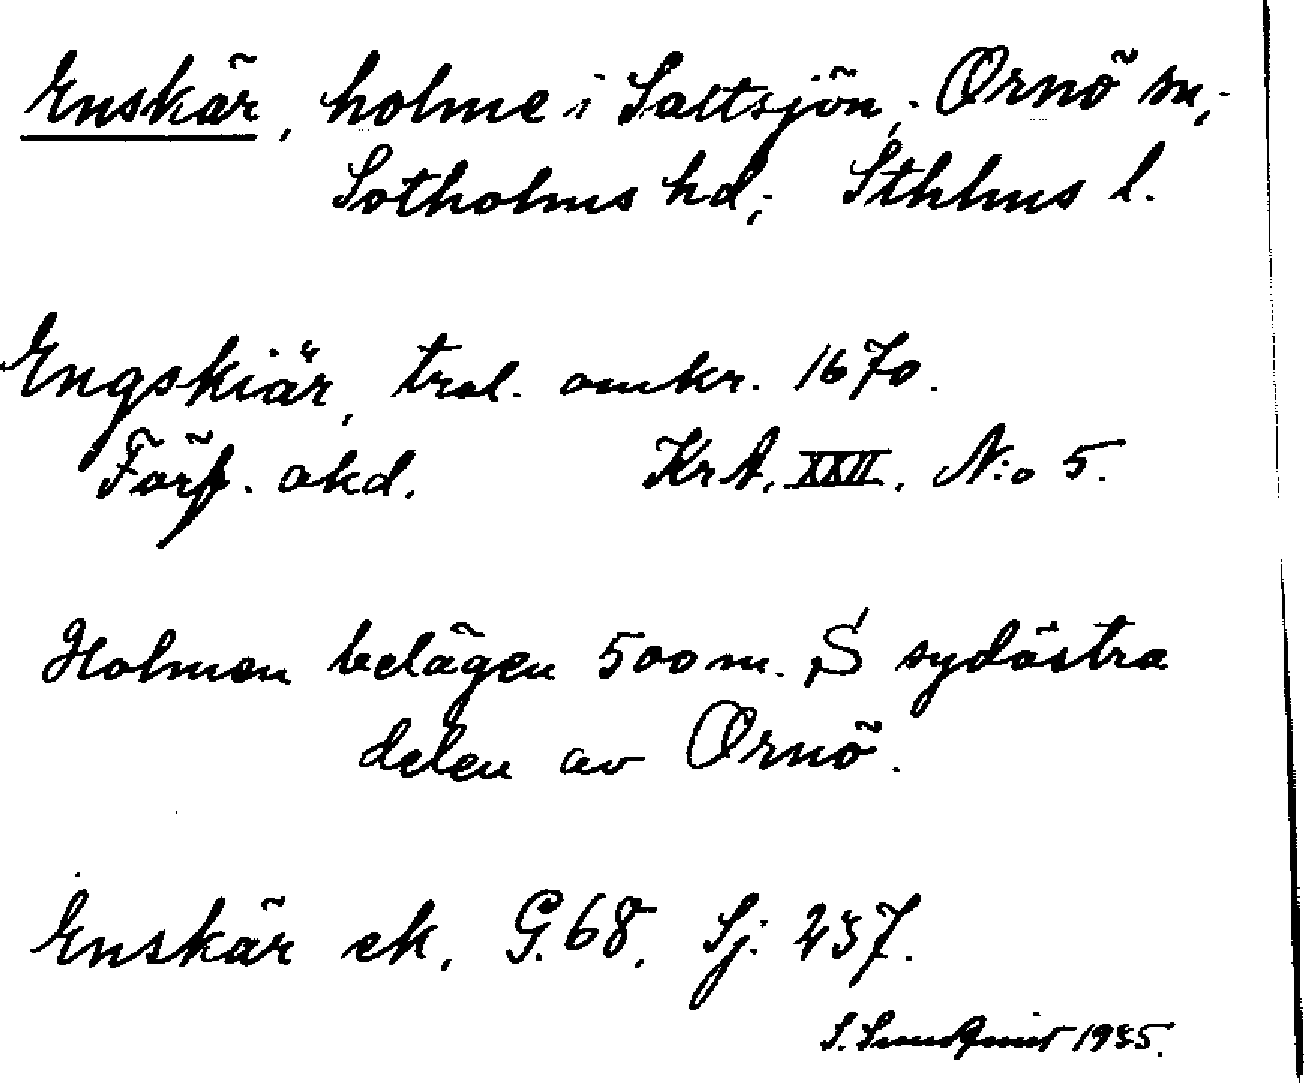 Enskär, holme i Saltsjön; Ornö sn,
Sotholms hd; Sthlms l.
Engskiär, trol. omkr. 1670.
Förf. okd. KrA. XXII. N:o 5.
Holmen belägen 500 m. S sydöstra
delen av Ornö.
Enskär ek. G. 68. Sj: 237.
S. Sundqvist 1935.